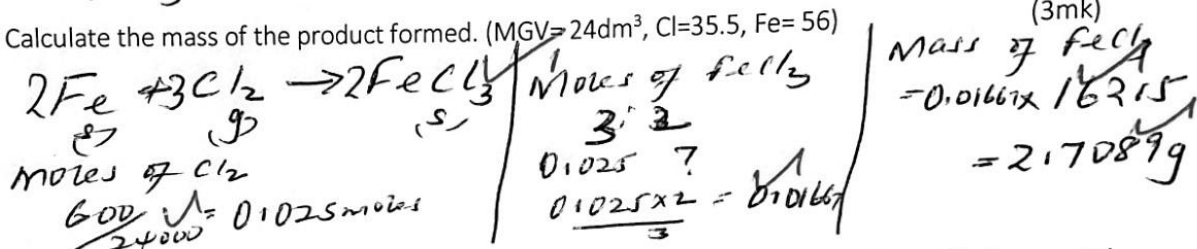 (3mk)
Calculate the mass of the product formed. (MGV= 24dm³, Cl=35.5, Fe= 56)
2Fe +3Cl₂ → 2FeCl₃
(s) (g) (s)
moles of Cl₂
600
24000
= 0.025 moles
Moles of FeCl₃
3 : 2
0.025 ?
0.025×2 = 0.01667
3
Mass of FeCl₃
=0.01667× 162.5
=2.7089g